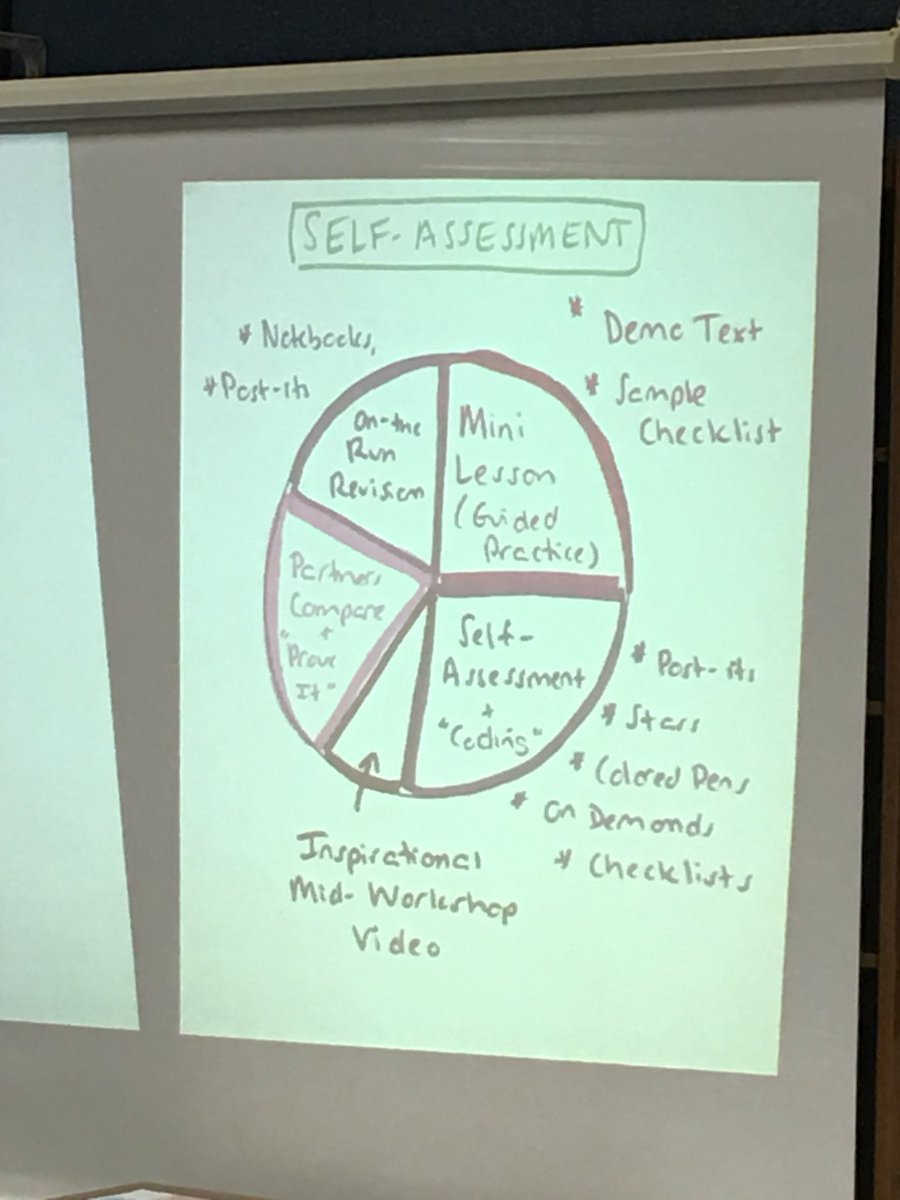 SELF-ASSESSMENT
* Notebooks,
* Post-its
* Demo Text
* Sample
Checklist
On-the
Run
Revision
Mini
Lesson
(Guided
Practice)
Partners
Compare
+
"Prove
It"
Self-
Assessment
+
"Coding"
* Post-its
* Stars
* Colored Pens
* On Demands
* Checklists
Inspirational
Mid-Workshop
Video